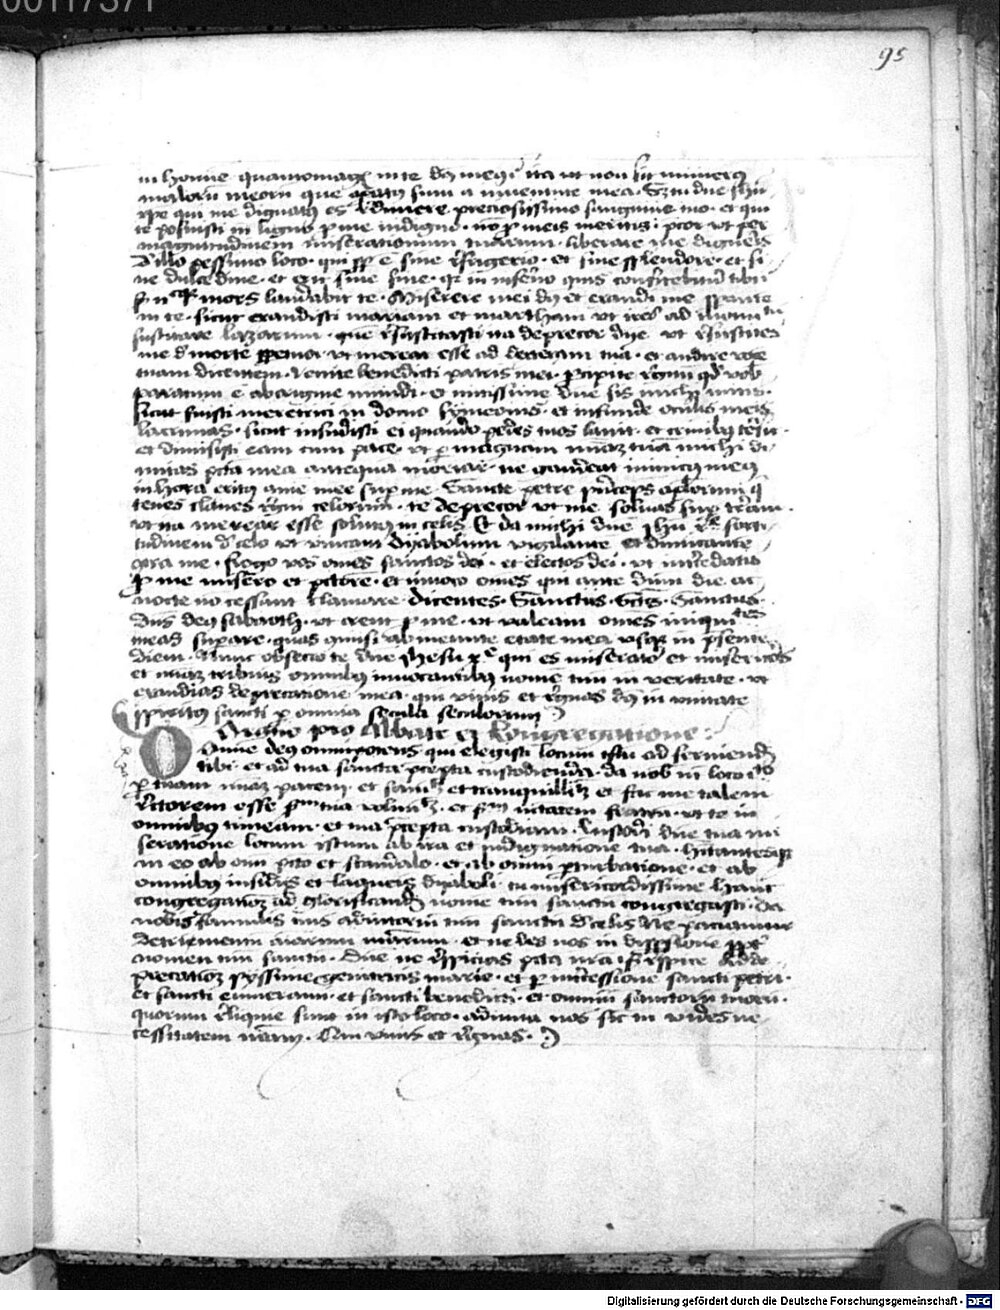 00117371
95
in homine quantomag in te ds meus ita ut non sit numerus
malorum meorum que opatus sum a iuventute mea. Sz tu dne ihu
xpe qui me dignatus es redimere preciosissimo sanguine tuo. et qui
te posuisti in ligno p me indigno. no p meis meritis. pcor ut per
magnitudinem miserationum tuarum. liberare me digneris
de illo pessimo loco. qui sp e sine refrigerio. et sine splendore. et si
ne dulcedine. et erit sine fine. qr in inferno quis confitebitur tibi
mors laudabit te. Miserere mei ds et exaudi me sperante
in te. sicut exaudisti mariam et martham
suscitare lazarum. quem resuscitasti ita deprecor dne ut resuscites
me de morte ut merear esse ad dexteram tua. et audire voce
tuam dicentem. venite benedicti patris mei. percipite regnum qd vob
paratum e ab origine mundi. et mitissime dne sis michi
sicut fuisti meretrici in domo symeonis. et infunde oculis meis
lacrimas. sicut infudisti ei quando pedes tuos lavit. et crinibus tersit
et dimisisti eam cum pace. ut p magnam miaz tua michi di
mittas pcta mea antequa moriar. ne gaudeat inimicus meus
in hora exitus anime mee sup me. Sancte petre princeps aplorum q
tenes claves regni celorum. te deprecor ut me solvas sup terram.
ut ita merear esse solutus in celis. Et da michi dne ihu xpe forti
tudinem de celo ut vincam dyabolum vigilante et dimicante
contra me. Rogo vos omes sanctos dei. et electos dei. ut intercedatis
p me misero et pctore. et invoco omes qui ante dnm die ac
nocte no cessant clamare dicentes. Sanctus. Scts. Sanctus.
dns deus sabaoth. ut orent p me. ut valeam omes iniquitates
meas superare. quas comisi ab ineunte etate mea usqz in psente
diem. Nunc obsecro te dne Ihesu xpe qui es miserator et misericors
et miaz tribuis omnibus invocantibus nome tuu in veritate. ut
exaudias deprecatione mea. qui vivis et regnas ds in unitate
spiritus sancti p omnia secula seculorum
Oratio pro Abbate et Congregatione:
Omne deus omnipotens qui elegisti locum istu ad serviendum
tibi. et ad tua sancta pcepta custodienda. da nob in loco isto
p tuam miaz pacem. et sanitatz et tranquillitatz et fac me talem
rectorem esse scdm tua voluntatz. et scdm utilitatem fratrum. ut te in
omnibus timeam. et tua pcepta custodiam. Custodi dne tua mi
seratione locum istum ab ira et indignatione tua. hitantesqz
in eo ab omi pcto et scandalo. et ab omni perturbatione. et ab
omnibus insidiis et laqueis dyaboli. tu misericordissime hanc
congregationem ad glorificandum nome tuu sanctu congregasti. da
nobis famulis tuis adiutoriu tuu sanctu de celis. Ne paciamur
detrimentum animarum nostrarum. et ne des nos in dispersione propter
nomen tuu sanctu. Dne ne respicias pcta nra. sed respice ad de
precationem pyssime genitricis marie. et p intercessione sancti petri.
et sancti emmerami. et sancti benedicti. et omniu sanctoru tuoru.
quorum reliquie sunt in isto loco. adiuva nos sic tu vides ne
cessitatem nram. Qui vivis et regnas.
Digitalisierung gefördert durch die Deutsche Forschungsgemeinschaft - DFG